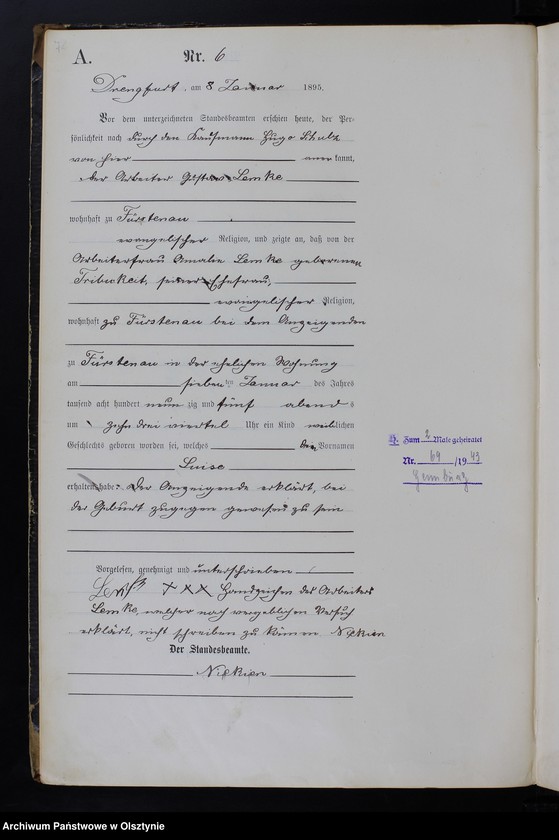 A.
Nr. 6
Drengfurt, am 8 Januar 1895.
Vor dem unterzeichneten Standesbeamten erschien heute, der Per-
sönlichkeit nach durch den Kaufmann Hugo Schulz
von hier aner kannt,
der Arbeiter Gustav Lemke
wohnhaft zu Fürstenau
evangelischer Religion, und zeigte an, daß von der
Arbeiterfrau Amalie Lemke geborenen
Tribukeit, seiner Ehefrau,
evangelischer Religion,
wohnhaft zu Fürstenau bei dem Anzeigenden
zu Fürstenau in der ehelichen Wohnung
am sieben ten Januar des Jahres
tausend acht hundert neun zig und fünf abend s
um zehn drei viertel Uhr ein Kind weiblichen
Geschlechts geboren worden sei, welches den Vornamen
Luise
erhalten habe. Der Anzeigende erklärt, bei
der Geburt zugegen gewesen zu sein
Vorgelesen, genehmigt und unterschrieben
+++ Handzeichen des Arbeiters
Lemke, welcher nach vergeblichen Versuch
erklärt, nicht schreiben zu können
Der Standesbeamte.
Zum 2 Male geheiratet
Nr. 69 /19 43
Archiwum Państwowe w Olsztynie